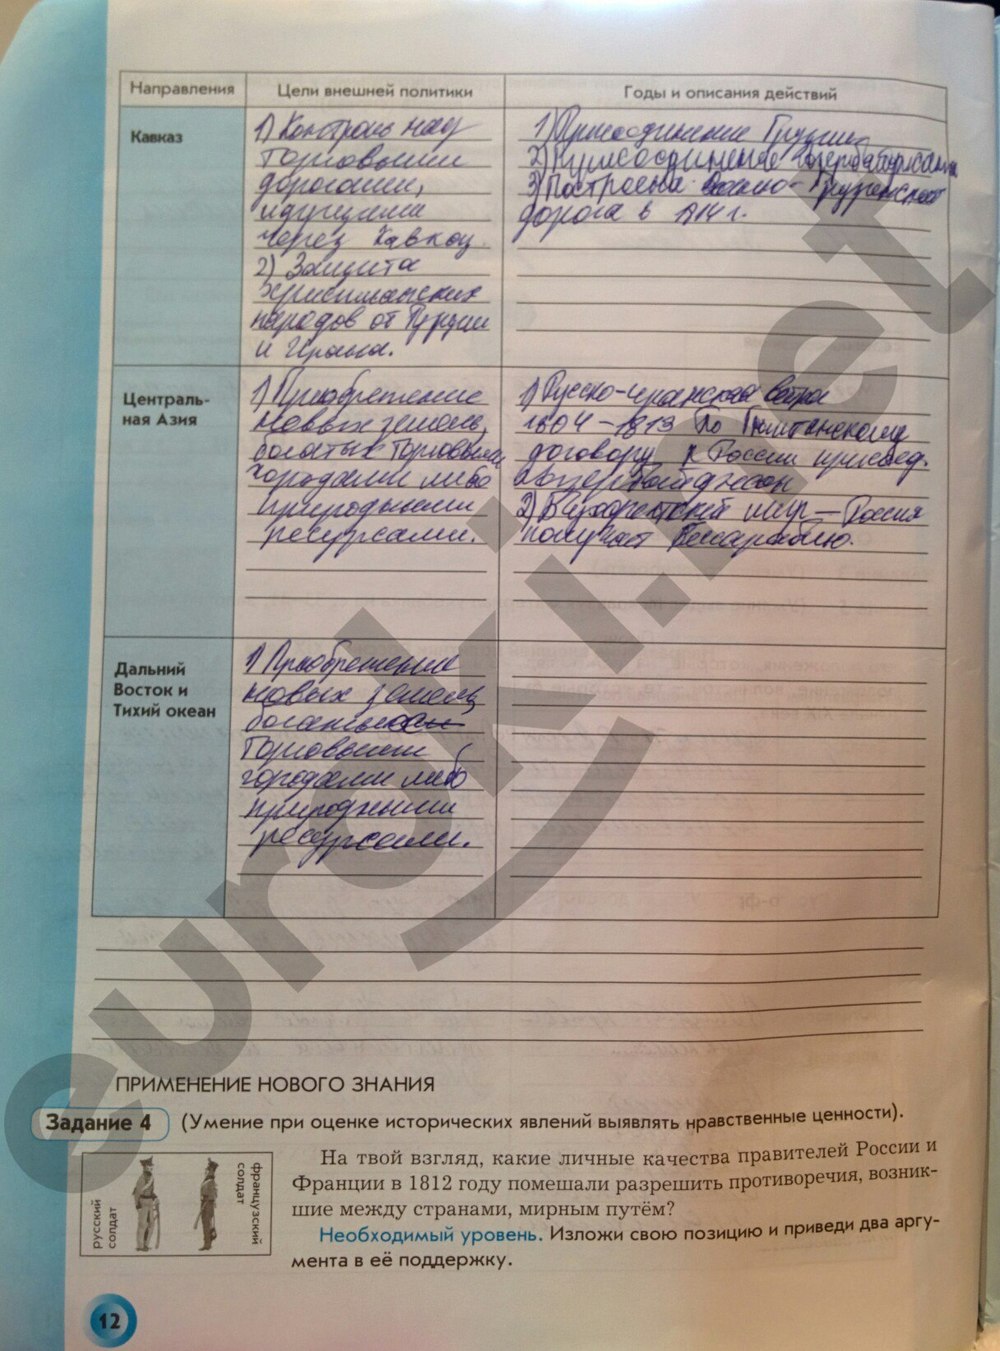 Направления
Цели внешней политики
Годы и описания действий
Кавказ
1) Контроль над
торговыми
дорогами,
идущими
через Кавказ.
2) Защита
христианских
народов от Турции
и Ирана.
1) Присоединение Грузии
2) Присоединение Азербайджана
3) Построена Военно-Грузинская
дорога в 1814 г.
Централь-
ная Азия
1) Приобретение
новых земель,
богатых торговыми
городами либо
природными
ресурсами.
1) Русско-иранская война
1804 – 1813 По Гюлистанскому
договору к России присоед.
Азербайджан
2) Бухарестский мир — Россия
получает Бессарабию.
Дальний
Восток и
Тихий океан
1) Приобретение
новых земель
богатых
торговыми
городами либо
природными
ресурсами.
ПРИМЕНЕНИЕ НОВОГО ЗНАНИЯ
Задание 4 (Умение при оценке исторических явлений выявлять нравственные ценности).
русский
солдат
французский
солдат
На твой взгляд, какие личные качества правителей России и
Франции в 1812 году помешали разрешить противоречия, возник-
шие между странами, мирным путём?
Необходимый уровень. Изложи свою позицию и приведи два аргу-
мента в её поддержку.
12
euroki.net